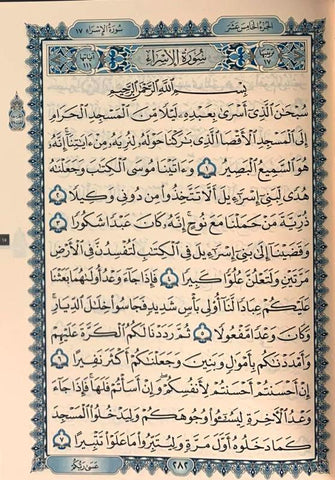 سُورَةُ الإِسْرَاءِ ١٧
الجُزْءُ الخَامِسَ عَشَرَ
سُورَةُ الإِسْرَاءِ
بِسْمِ اللَّهِ الرَّحْمَٰنِ الرَّحِيمِ
سُبْحَٰنَ ٱلَّذِىٓ أَسْرَىٰ بِعَبْدِهِۦ لَيْلًا مِّنَ ٱلْمَسْجِدِ ٱلْحَرَامِ
إِلَى ٱلْمَسْجِدِ ٱلْأَقْصَا ٱلَّذِى بَٰرَكْنَا حَوْلَهُۥ لِنُرِيَهُۥ مِنْ ءَايَٰتِنَآ إِنَّهُۥ
هُوَ ٱلسَّمِيعُ ٱلْبَصِيرُ ١ وَءَاتَيْنَا مُوسَى ٱلْكِتَٰبَ وَجَعَلْنَٰهُ
هُدًى لِّبَنِىٓ إِسْرَٰٓءِيلَ أَلَّا تَتَّخِذُوا۟ مِن دُونِى وَكِيلًا ٢
ذُرِّيَّةَ مَنْ حَمَلْنَا مَعَ نُوحٍ إِنَّهُۥ كَانَ عَبْدًا شَكُورًا ٣
وَقَضَيْنَآ إِلَىٰ بَنِىٓ إِسْرَٰٓءِيلَ فِى ٱلْكِتَٰبِ لَتُفْسِدُنَّ فِى ٱلْأَرْضِ
مَرَّتَيْنِ وَلَتَعْلُنَّ عُلُوًّا كَبِيرًا ٤ فَإِذَا جَآءَ وَعْدُ أُولَىٰهُمَا بَعَثْنَا
عَلَيْكُمْ عِبَادًا لَّنَآ أُو۟لِى بَأْسٍ شَدِيدٍ فَجَاسُوا۟ خِلَٰلَ ٱلدِّيَارِ
وَكَانَ وَعْدًا مَّفْعُولًا ٥ ثُمَّ رَدَدْنَا لَكُمُ ٱلْكَرَّةَ عَلَيْهِمْ
وَأَمْدَدْنَٰكُم بِأَمْوَٰلٍ وَبَنِينَ وَجَعَلْنَٰكُمْ أَكْثَرَ نَفِيرًا ٦
إِنْ أَحْسَنتُمْ أَحْسَنتُمْ لِأَنفُسِكُمْ وَإِنْ أَسَأْتُمْ فَلَهَا فَإِذَا جَآءَ
وَعْدُ ٱلْءَاخِرَةِ لِيَسُۥٓـُٔوا۟ وُجُوهَكُمْ وَلِيَدْخُلُوا۟ ٱلْمَسْجِدَ
كَمَا دَخَلُوهُ أَوَّلَ مَرَّةٍ وَلِيُتَبِّرُوا۟ مَا عَلَوْا۟ تَتْبِيرًا ٧
٢٨٢
عَسَىٰ رَبُّكُمْ